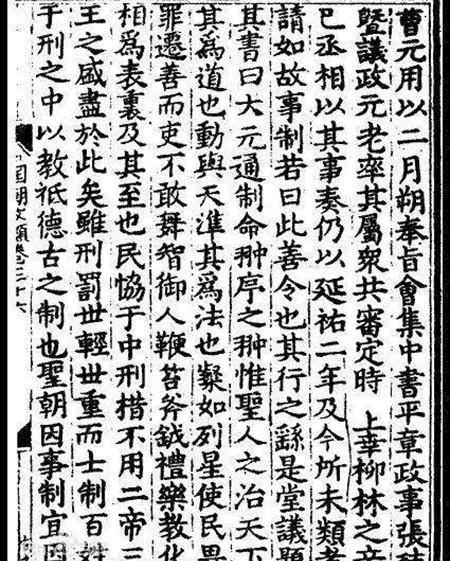 曹元用以二月朔奉旨會集中書平章政事張
暨議政元老率其屬衆共審定時 上幸柳林之辛
巳丞相以其事奏仍以延祐二年及今所未類者
請如故事制若曰此善令也其行之繇是堂議題
其書曰大元通制命翀序之翀惟聖人之治天下
其爲道也動與天準其爲法也粲如列星使民畏
罪遷善而吏不敢舞智御人鞭笞斧鉞禮樂教化
相爲表裏及其至也民恊于中刑措不用二帝三
王之盛盡於此矣雖刑罰世輕世重而士制百姓
于刑之中以教祗德古之制也聖朝因事制宜因
国朝文類卷三十六